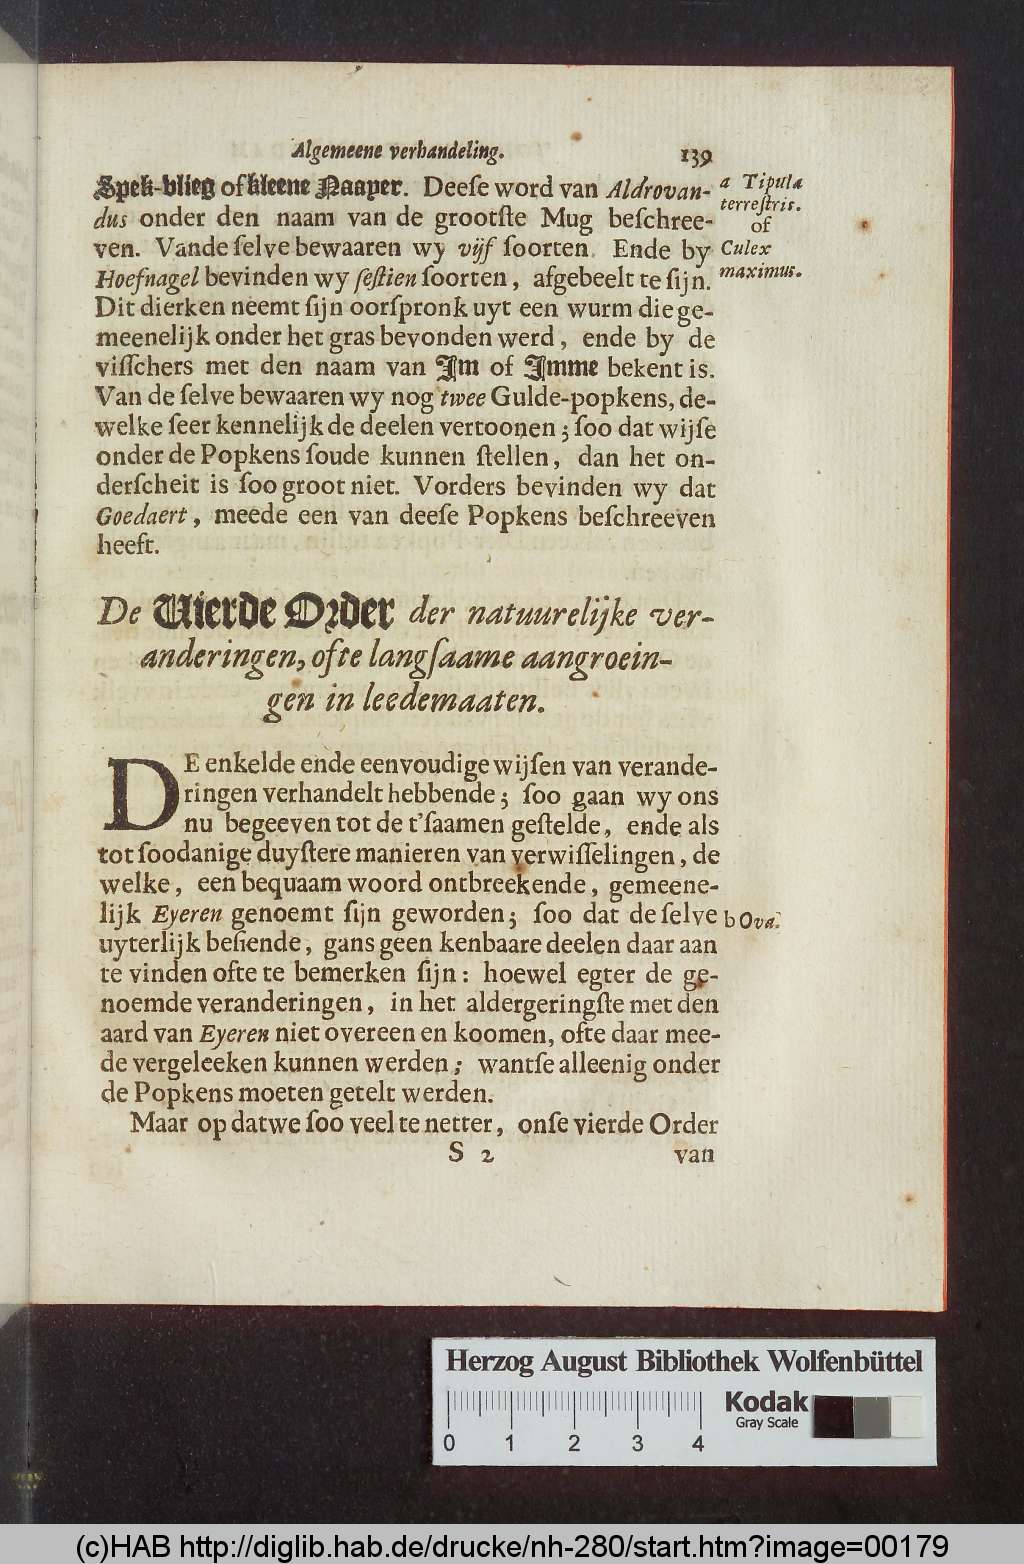 Algemeene verhandeling. 139
Spek-vlieg of kleene Naaper. Deeſe word van Aldrovan-
dus onder den naam van de grootſte Mug beſchree-
ven. Vande ſelve bewaaren wy vijf ſoorten. Ende by
Hoefnagel bevinden wy ſeſtien ſoorten, afgebeelt te ſijn.
a Tipula
terreſtris.
of
Culex
maximus.
Dit dierken neemt ſijn oorſpronk uyt een wurm die ge-
meenelijk onder het gras bevonden werd, ende by de
viſſchers met den naam van Im of Imme bekent is.
Van de ſelve bewaaren wy nog twee Gulde-popkens, de-
welke ſeer kennelijk de deelen vertoonen; ſoo dat wijſe
onder de Popkens ſoude kunnen ſtellen, dan het on-
derſcheit is ſoo groot niet. Vorders bevinden wy dat
Goedaert, meede een van deeſe Popkens beſchreeven
heeft.
De Vierde Order der natuurelijke ver-
anderingen, ofte langſaame aangroein-
gen in leedemaaten.
DE enkelde ende eenvoudige wijſen van verande-
ringen verhandelt hebbende; ſoo gaan wy ons
nu begeeven tot de t'ſaamen geſtelde, ende als
tot ſoodanige duyſtere manieren van verwiſſelingen, de
welke, een bequaam woord ontbreekende, gemeene-
lijk Eyeren genoemt ſijn geworden; ſoo dat de ſelve
b Ova.
uyterlijk beſiende, gans geen kenbaare deelen daar aan
te vinden ofte te bemerken ſijn: hoewel egter de ge-
noemde veranderingen, in het aldergeringſte met den
aard van Eyeren niet overeen en koomen, ofte daar mee-
de vergeleeken kunnen werden; wantſe alleenig onder
de Popkens moeten getelt werden.
Maar op datwe ſoo veel te netter, onſe vierde Order
S 2 van
Herzog August Bibliothek Wolfenbüttel
Kodak
Gray Scale
0 1 2 3 4
(c)HAB http://diglib.hab.de/drucke/nh-280/start.htm?image=00179